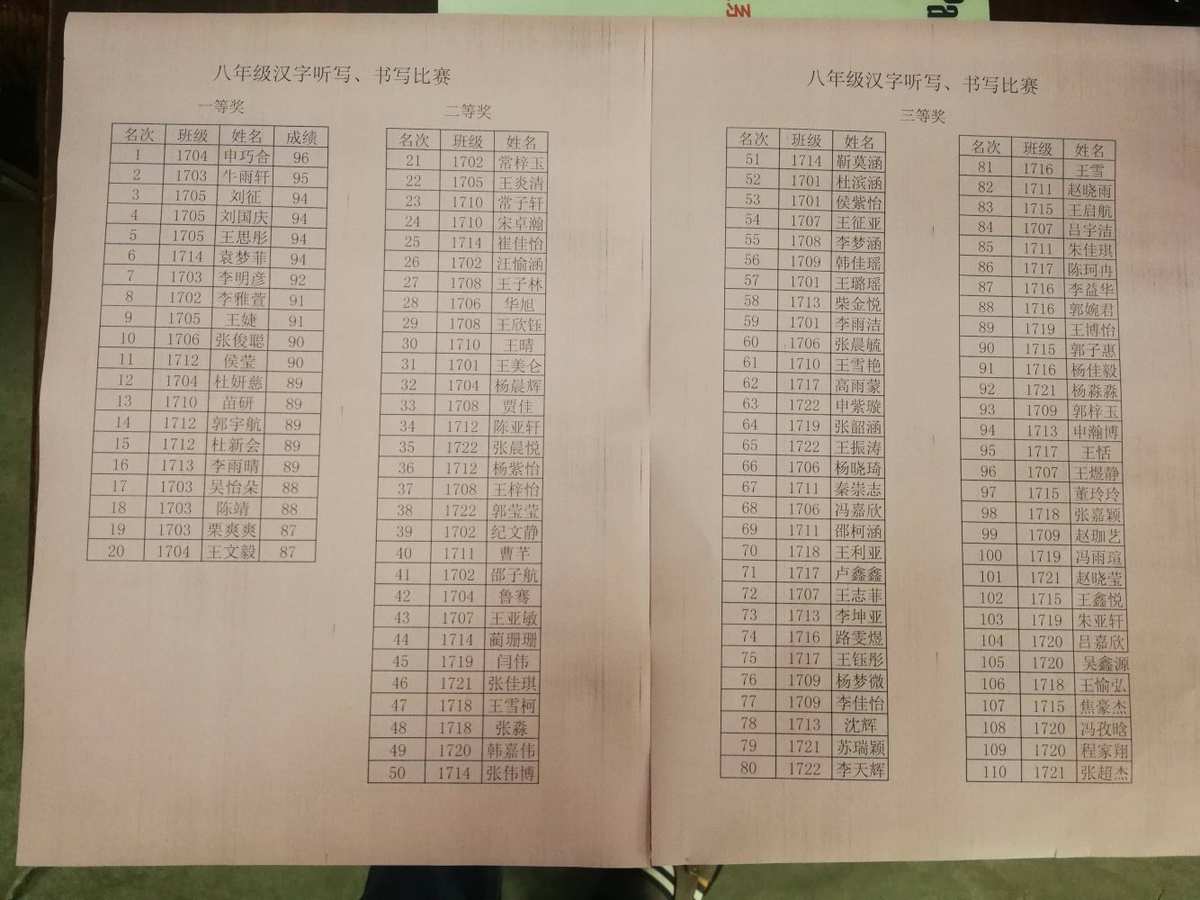 八年级汉字听写、书写比赛
一等奖
名次 班级 姓名 成绩
1 1704 申巧合 96
2 1703 牛雨轩 95
3 1705 刘征 94
4 1705 刘国庆 94
5 1705 王思彤 94
6 1714 袁梦菲 94
7 1703 李明彦 92
8 1702 李雅萱 91
9 1705 王婕 91
10 1706 张俊聪 90
11 1712 侯莹 90
12 1704 杜妍慈 89
13 1710 苗研 89
14 1712 郭宇航 89
15 1712 杜新会 89
16 1713 李雨晴 89
17 1703 吴怡朵 88
18 1703 陈靖 88
19 1703 栗爽爽 87
20 1704 王文毅 87
二等奖
名次 班级 姓名
21 1702 常梓玉
22 1705 王炎清
23 1710 常子轩
24 1710 宋卓瀚
25 1714 崔佳怡
26 1702 汪愉涵
27 1708 王子林
28 1706 华旭
29 1708 王欣钰
30 1710 王晴
31 1701 王美仑
32 1704 杨晨辉
33 1708 贾佳
34 1712 陈亚轩
35 1722 张晨悦
36 1712 杨紫怡
37 1708 王梓怡
38 1722 郭莹莹
39 1702 纪文静
40 1711 曹芊
41 1702 邵子航
42 1704 鲁骞
43 1707 王亚敏
44 1714 蔺珊珊
45 1719 闫伟
46 1721 张佳琪
47 1718 王雪柯
48 1718 张淼
49 1720 韩嘉伟
50 1714 张伟博
八年级汉字听写、书写比赛
三等奖
名次 班级 姓名
51 1714 靳莫涵
52 1701 杜滨涵
53 1701 侯紫怡
54 1707 王征亚
55 1708 李梦涵
56 1709 韩佳瑶
57 1701 王璐瑶
58 1713 柴金悦
59 1701 李雨洁
60 1706 张晨毓
61 1710 王雪艳
62 1717 高雨蒙
63 1722 申紫璇
64 1719 张韶涵
65 1722 王振涛
66 1706 杨晓琦
67 1711 秦崇志
68 1706 冯嘉欣
69 1711 邵柯涵
70 1718 王利亚
71 1717 卢鑫鑫
72 1707 王志菲
73 1713 李坤亚
74 1716 路雯煜
75 1717 王钰彤
76 1709 杨梦微
77 1709 李佳怡
78 1713 沈辉
79 1721 苏瑞颖
80 1722 李天辉
名次 班级 姓名
81 1716 王雪
82 1711 赵晓雨
83 1715 王启航
84 1707 吕宇洁
85 1711 朱佳琪
86 1717 陈珂冉
87 1716 李益华
88 1716 郭婉君
89 1719 王博怡
90 1715 郭子惠
91 1716 杨佳毅
92 1721 杨淼淼
93 1709 郭梓玉
94 1713 申瀚博
95 1717 王恬
96 1707 王煜静
97 1715 董玲玲
98 1718 张嘉颖
99 1709 赵珈艺
100 1719 冯雨瑄
101 1721 赵晓莹
102 1715 王鑫悦
103 1719 朱亚轩
104 1720 吕嘉欣
105 1720 吴鑫源
106 1718 王愉弘
107 1715 焦豪杰
108 1720 冯孜晗
109 1720 程家翔
110 1721 张超杰